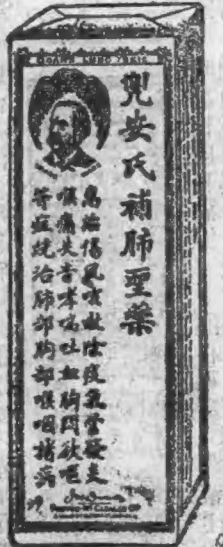 DOAN'S LUNG TONIC
兜安氏補肺聖藥
專治傷風咳嗽除痰氣管發炎
喉痛失音哮喘吐血胸悶欲嘔
等症統治肺部胸部喉咽諸病